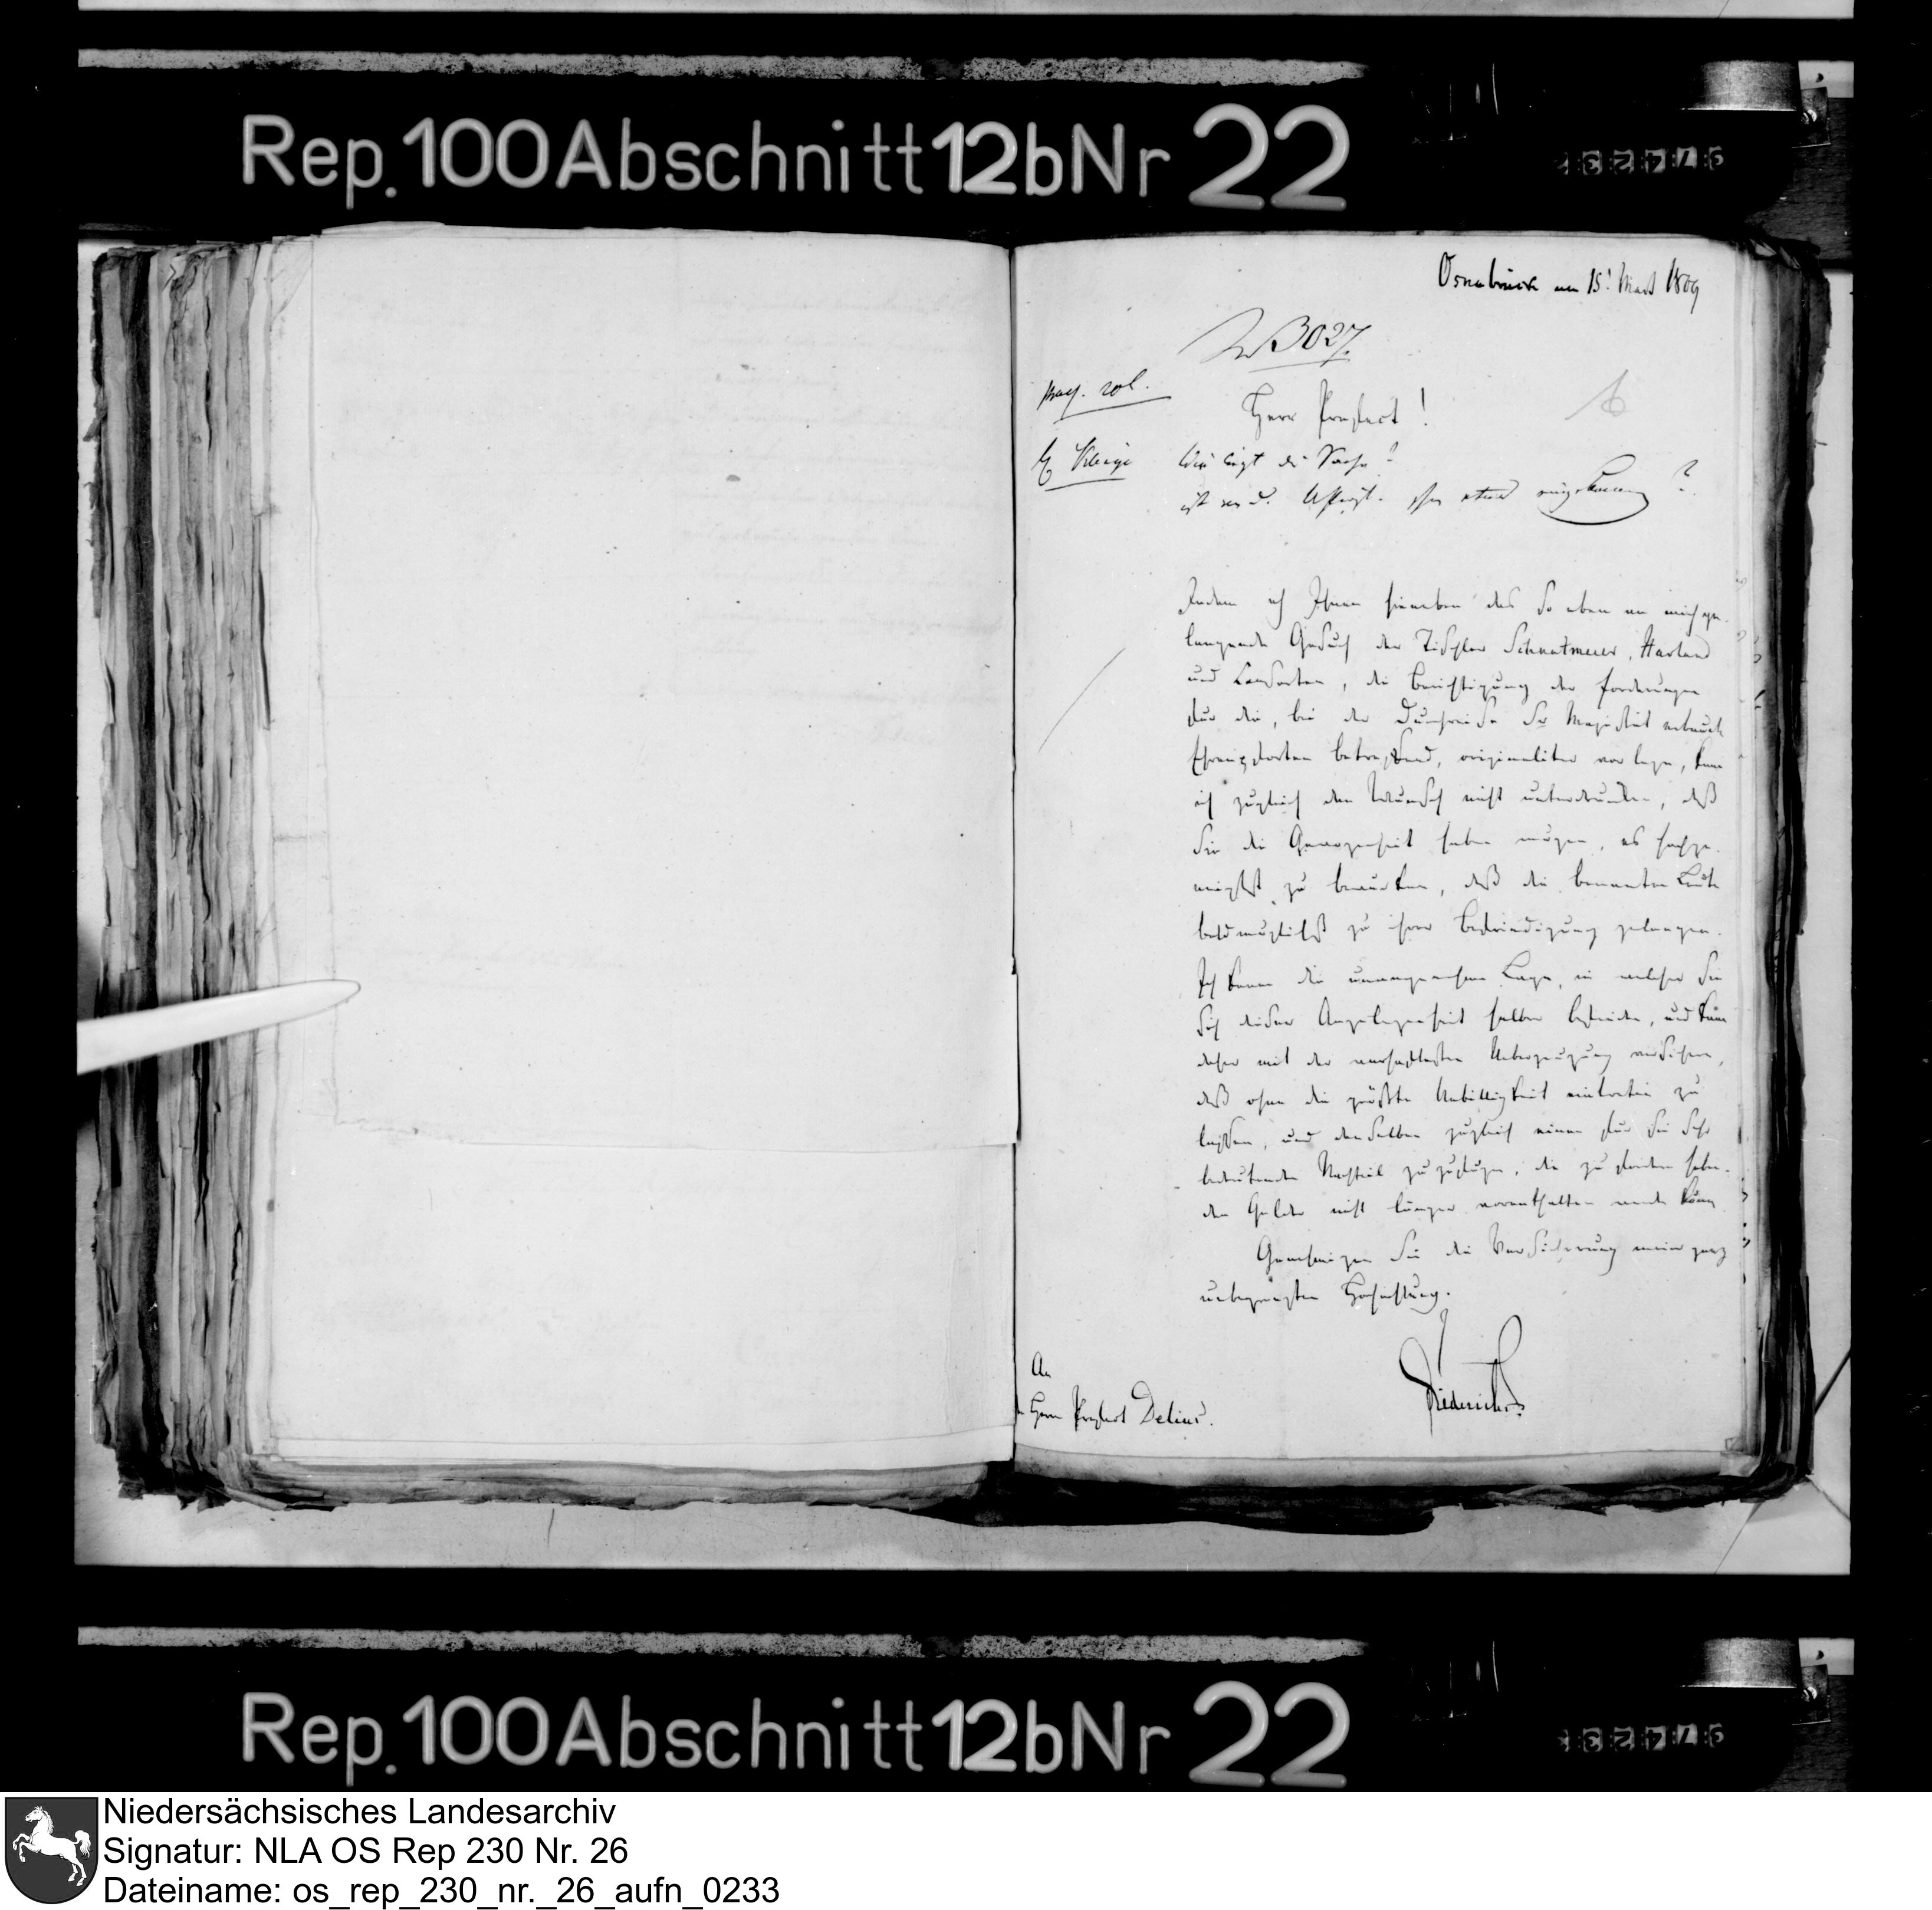 Rep. 100 Abschnitt 12b Nr 22
Osnabrück am 15t März 1809
3027.
Herr Praefect!
Wie liegt die Sache?
ist von d. etwas eingekommen?
Indem ich Ihnen hieneben das so eben an mich ge-
langende Gesuch der Tischler Schnatmeier, Harland
und Consorten, die Berichtigung der Forderungen
für die, bei der Durchreise Sr Majestät erbaute
Ehrenpforten betreffend, originaliter vorlege, kann
ich zugleich den Wunsch nicht unterdrücken, daß
Sie die Gewogenheit haben mögen, es
zu bewirken, daß die benannten Leute
baldmöglichst zu ihrer Befriedigung gelangen.
Ich kenne die unangenehme Lage, in welcher Sie
sich dieser Angelegenheit halber befinden, und kann
daher mit der Ueberzeugung versichern,
daß ohne die größte Unbilligkeit eintreten zu
lassen, und denselben zugleich einen für sie sehr
bedeutenden Nachteil zuzufügen, die zu fordern haben-
den Gelder nicht länger vorenthalten werden können
Genehmigen Sie die Versicherung meiner ganz
unbegrenzten Hochachtung.
An
Herrn Praefect Delius.
Diederichs
Rep. 100 Abschnitt 12b Nr 22
Niedersächsisches Landesarchiv
Signatur: NLA OS Rep 230 Nr. 26
Dateiname: os_rep_230_nr._26_aufn_0233